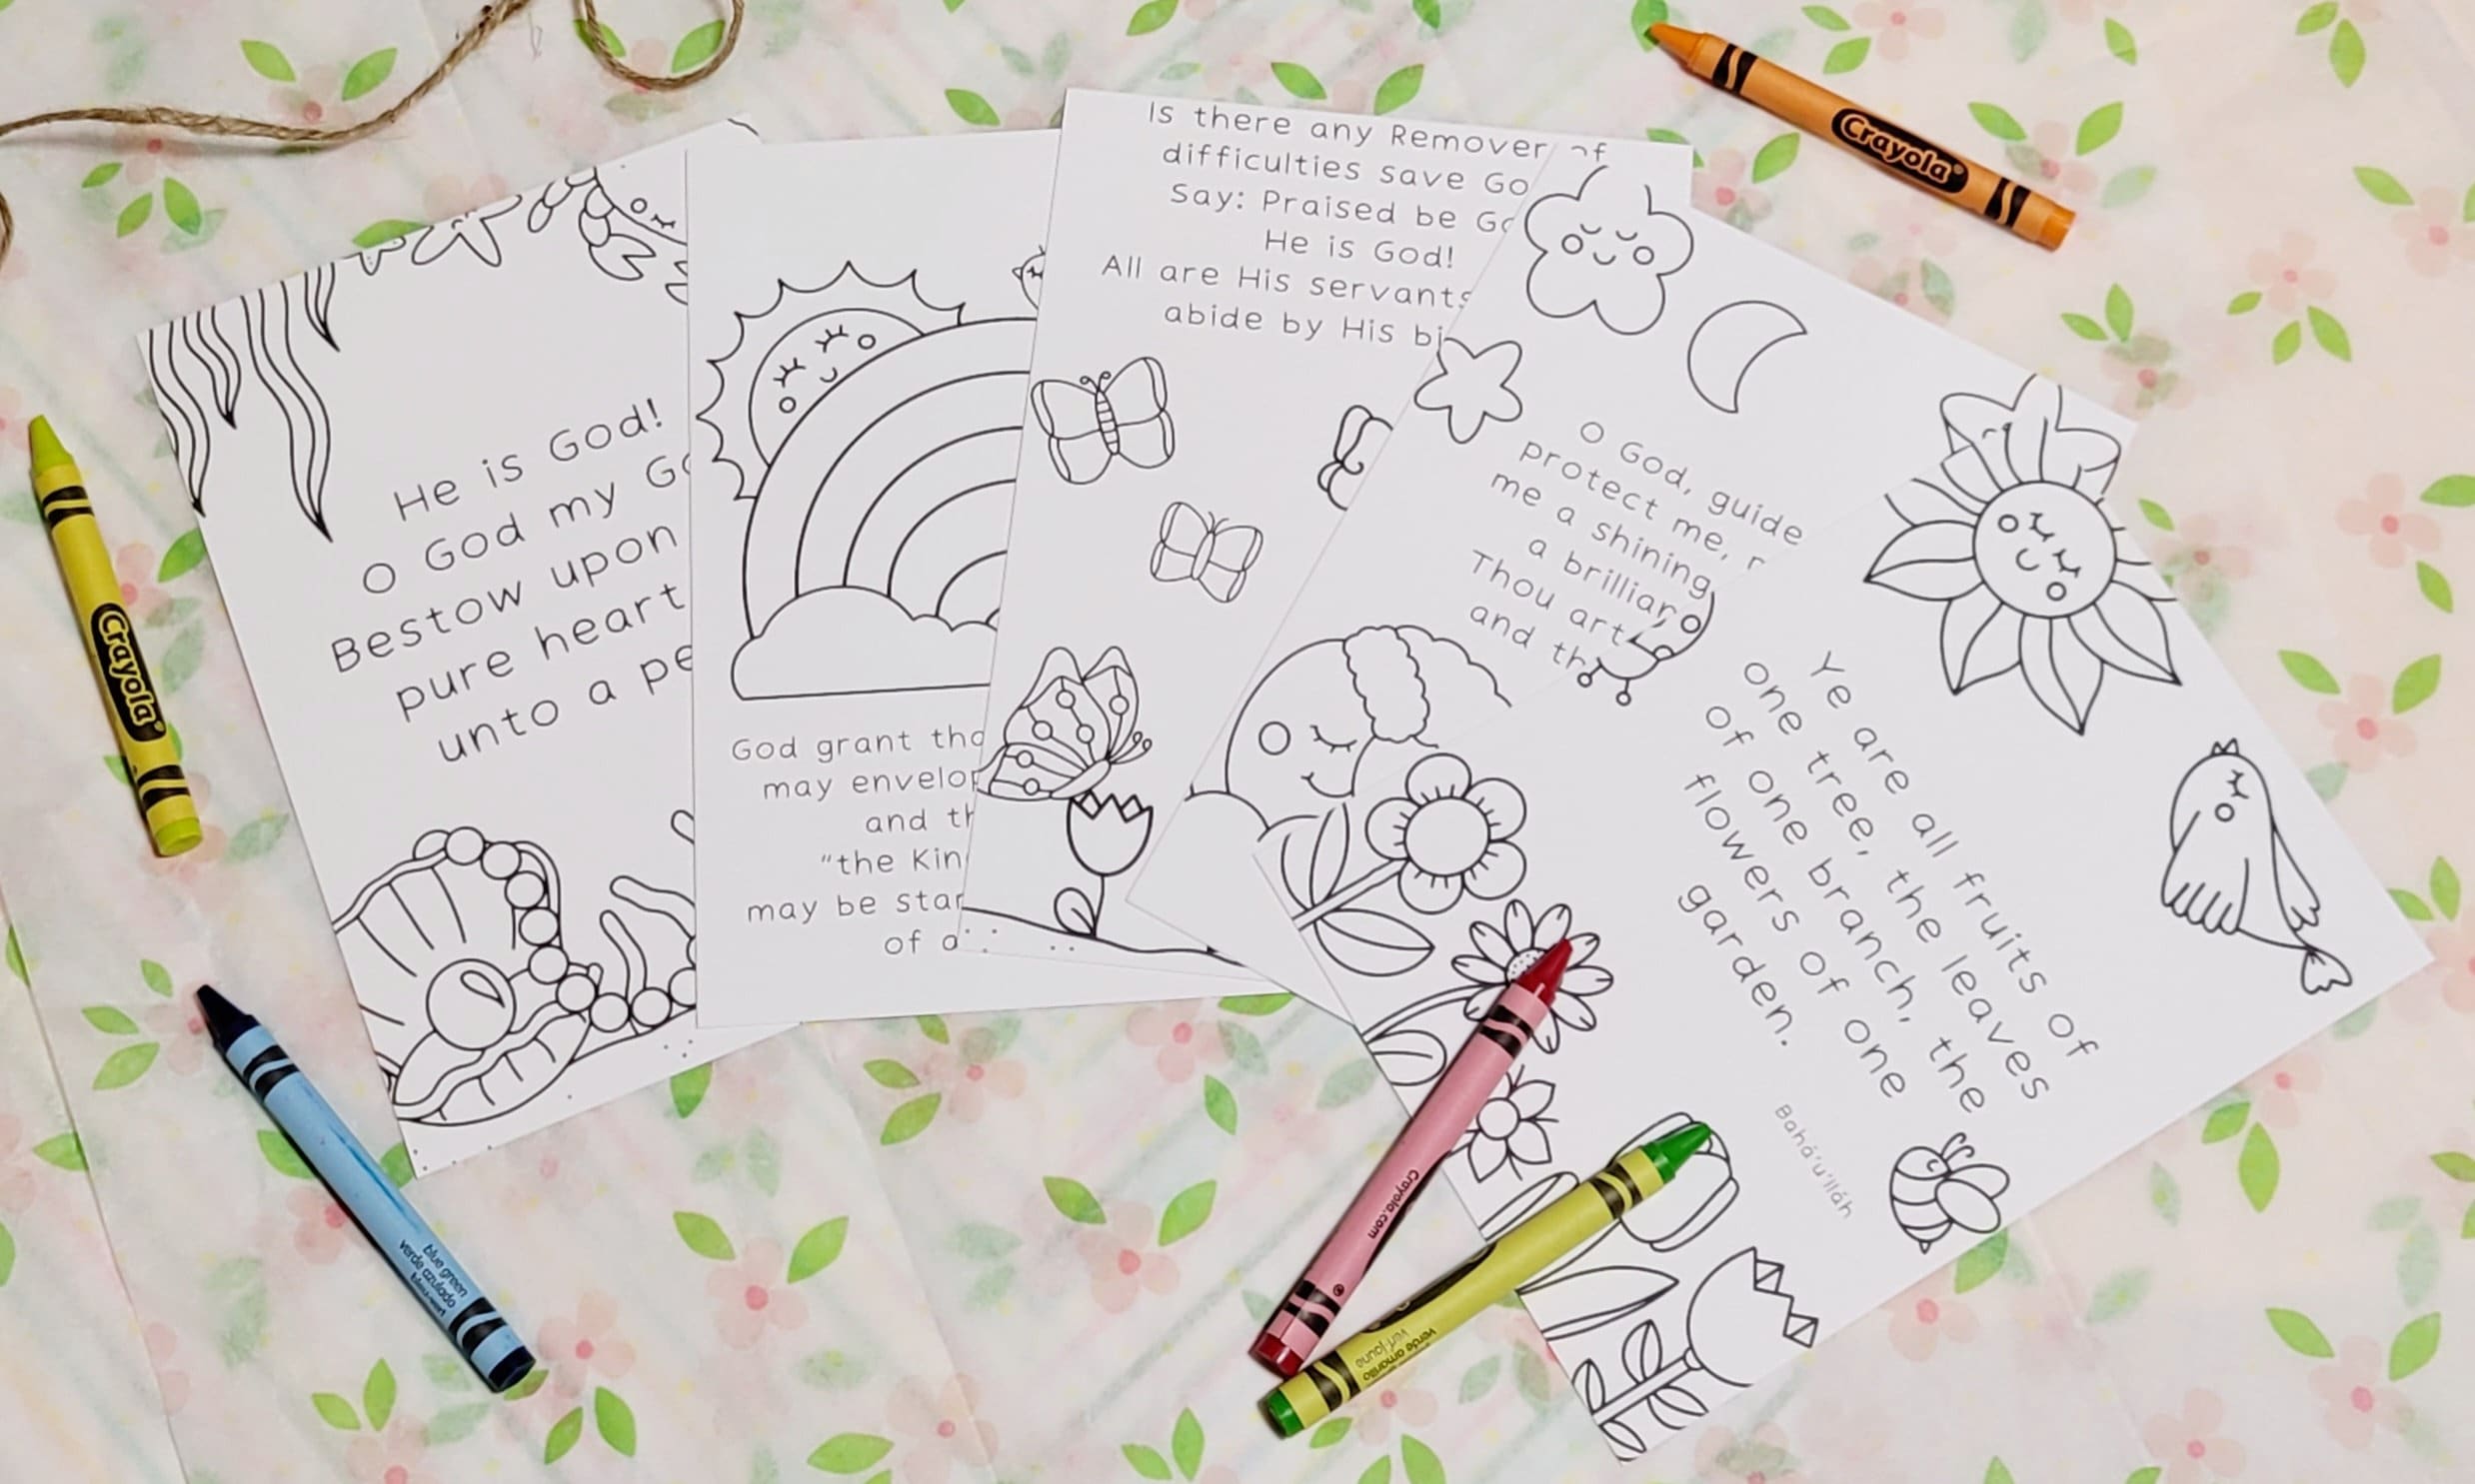 He is God!
O God my
Bestow upon
pure heart
unto a
God grant
may
and
"the
may be
of
Is there any Remover of
difficulties save
Say: Praised be
He is God!
All are His servants
abide by His
O God, guide
protect me,
me a shining
a
Thou art
and
Ye are all fruits of
one tree, the leaves
of one branch, the
flowers of one
garden.
Bahá'u'lláh
Crayola
Crayola
blue green
verde azulado
Crayola.com
verde amarillo
vert jaune